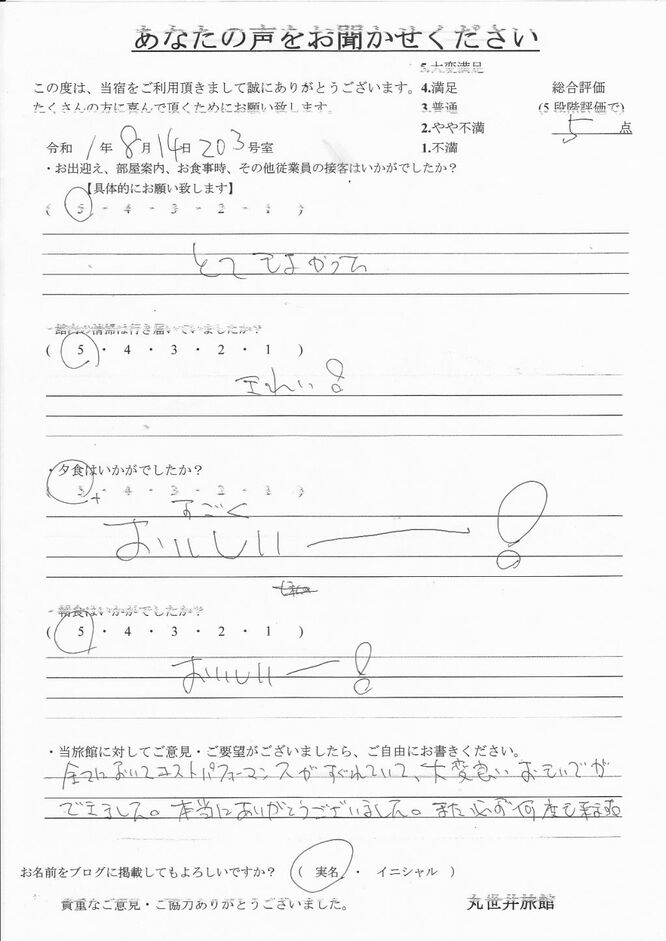 あなたの声をお聞かせください
5.大変満足
この度は、当宿をご利用頂きまして誠にありがとうございます。 4.満足 総合評価
たくさんの方に喜んで頂くためにお願い致します。 3.普通 (5段階評価で)
2.やや不満 5 点
令和 1 年 8 月 14 日 203 号室 1.不満
・お出迎え、部屋案内、お食事時、その他従業員の接客はいかがでしたか？
【具体的にお願い致します】
( 5 ・ 4 ・ 3 ・ 2 ・ 1 )
とてもよかった
・館内の清掃は行き届いていましたか？
( 5 ・ 4 ・ 3 ・ 2 ・ 1 )
きれい！
・夕食はいかがでしたか？
( 5 ・ 4 ・ 3 ・ 2 ・ 1 )
+ すごく
おいしいー！
・朝食はいかがでしたか？
( 5 ・ 4 ・ 3 ・ 2 ・ 1 )
おいしいー！
・当旅館に対してご意見・ご要望がございましたら、ご自由にお書きください。
全てにおいてコストパフォーマンスがすぐれていて、大変良いおもいでが
できました。本当にありがとうございました。また必ず何度も来ます
お名前をブログに掲載してもよろしいですか？ ( 実名 ・ イニシャル )
貴重なご意見・ご協力ありがとうございました。 丸世井旅館